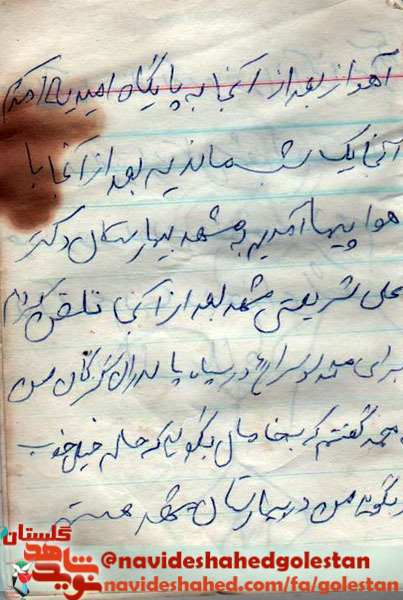 آهواز بعد از آنجا به پایگاه امیدیه آمدیم
آنجا یک شب ماندیم بعد از آنجا با
هواپیما آمدیم به مشهد بیمارستان دکتر
علی شریعتی مشهد بعد از آنجا تلفن کردم
برای محمد در سپاه پاسداران گرگان من
محمد گفتم که بخادمان بگوئید که حالم خیلی خوب
بگوئید من در بیمارستان مشهد هستم
گلستان
نوید شاهد
@navideshahedgolestan
navideshahed.com/fa/golestan